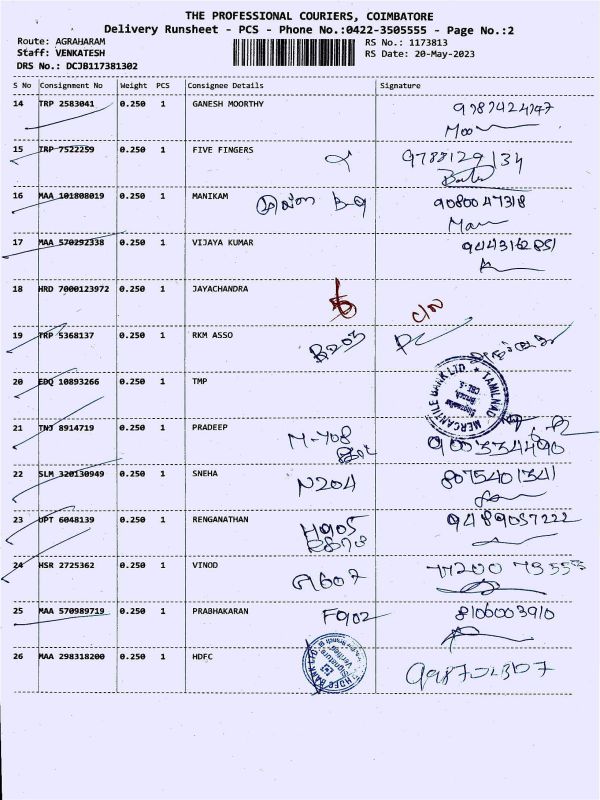 THE PROFESSIONAL COURIERS, COIMBATORE
Delivery Runsheet - PCS - Phone No.:0422-3505555 - Page No.:2
Route: AGRAHARAM RS No.: 1173813
Staff: VENKATESH RS Date: 20-May-2023
DRS No.: DCJB117381302
S No Consignment No Weight PCS Consignee Details Signature
14 TRP 2583041 0.250 1 GANESH MOORTHY
15 TRP 7522259 0.250 1 FIVE FINGERS 9788129134
16 MAA 101808019 0.250 1 MANIKAM 9080047318
17 MAA 570292338 0.250 1 VIJAYA KUMAR 9443162851
18 HRD 7000123972 0.250 1 JAYACHANDRA
19 TRP 5368137 0.250 1 RKM ASSO B203
20 EDQ 10893266 0.250 1 TMP
TAMILNAD MERCANTILE BANK LTD.
21 TNJ 8914719 0.250 1 PRADEEP M-708 9003334490
22 SLM 320130949 0.250 1 SNEHA N204 8075401341
23 UPT 6048139 0.250 1 RENGANATHAN H905 9489057222
24 HSR 2725362 0.250 1 VINOD A602
25 MAA 570989719 0.250 1 PRABHAKARAN F902 8106003910
26 MAA 298318200 0.250 1 HDFC
HDFC BANK LTD.